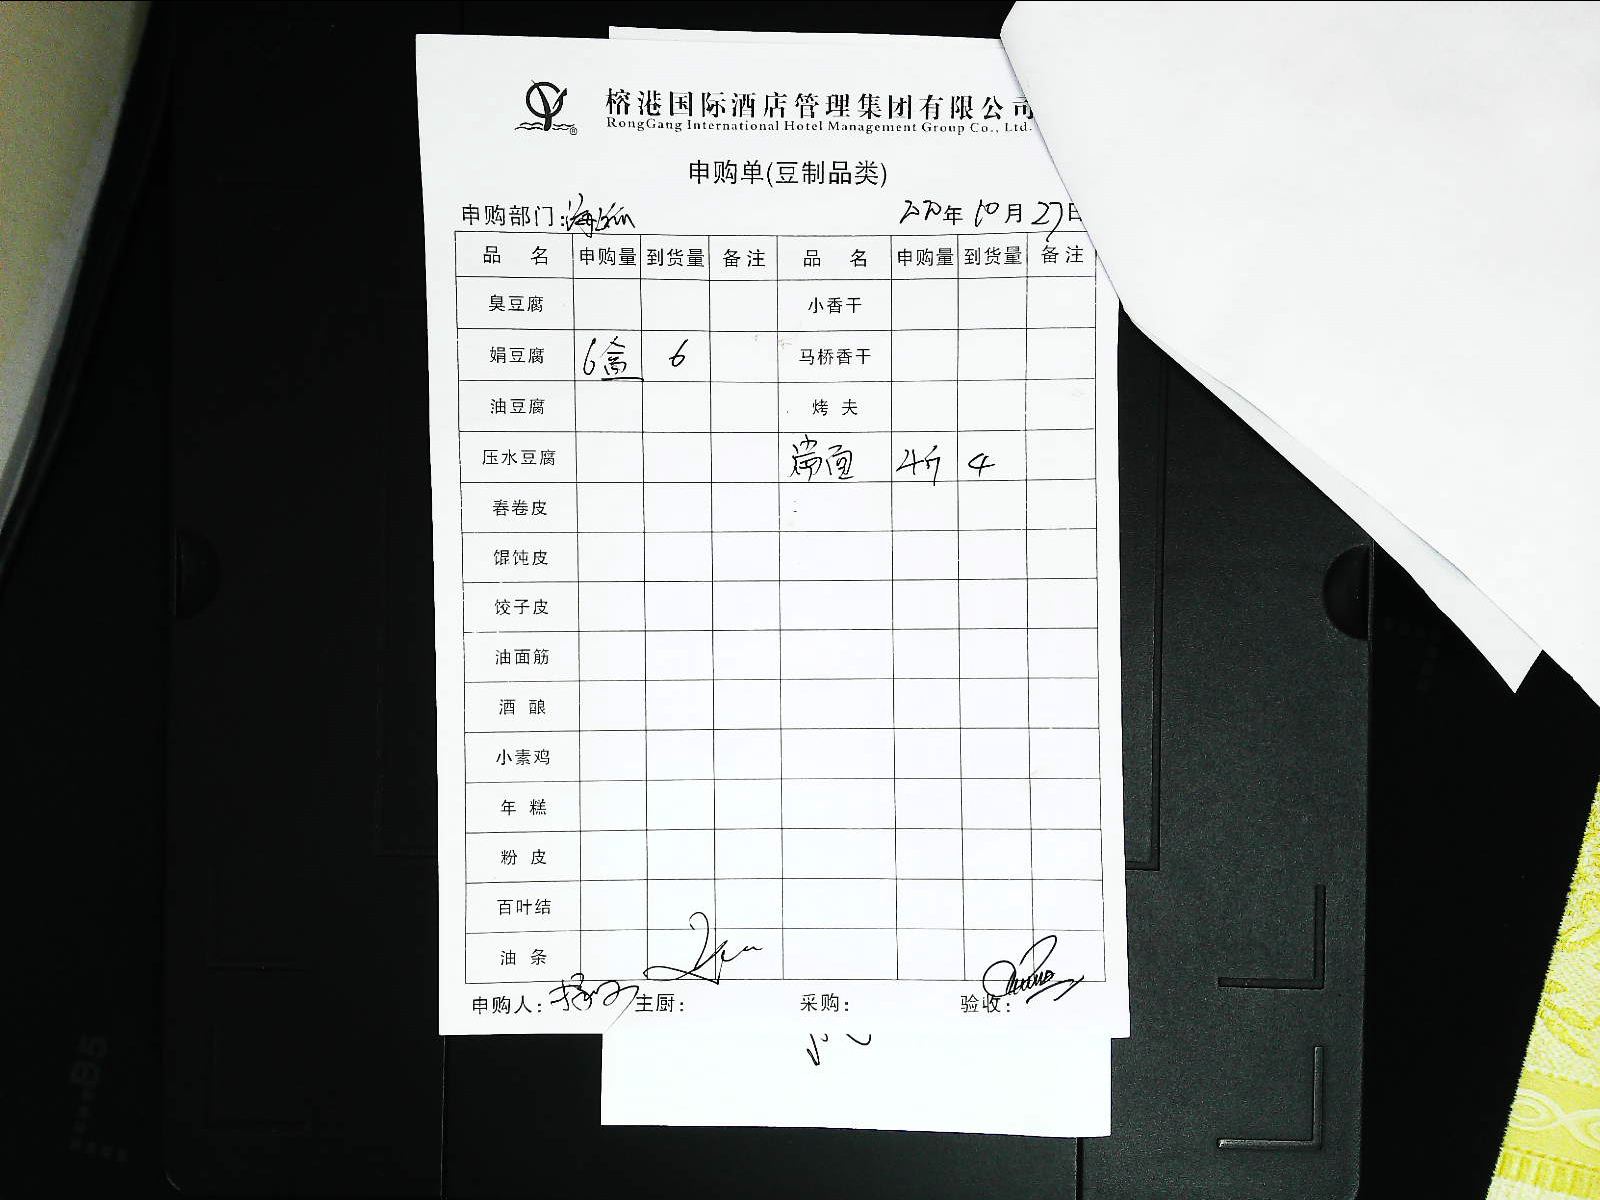 榕港国际酒店管理集团有限公司
RongGang International Hotel Management Group Co., Ltd.
申购单(豆制品类)
申购部门: 年10月27日
品 名 申购量 到货量 备注 品 名 申购量 到货量 备注
臭豆腐 小香干
娟豆腐 6盒 6 马桥香干
油豆腐 烤 夫
压水豆腐 4斤 4
春卷皮
馄饨皮
饺子皮
油面筋
酒 酿
小素鸡
年 糕
粉 皮
百叶结
油 条
申购人: 主厨: 采购: 验收:
B5